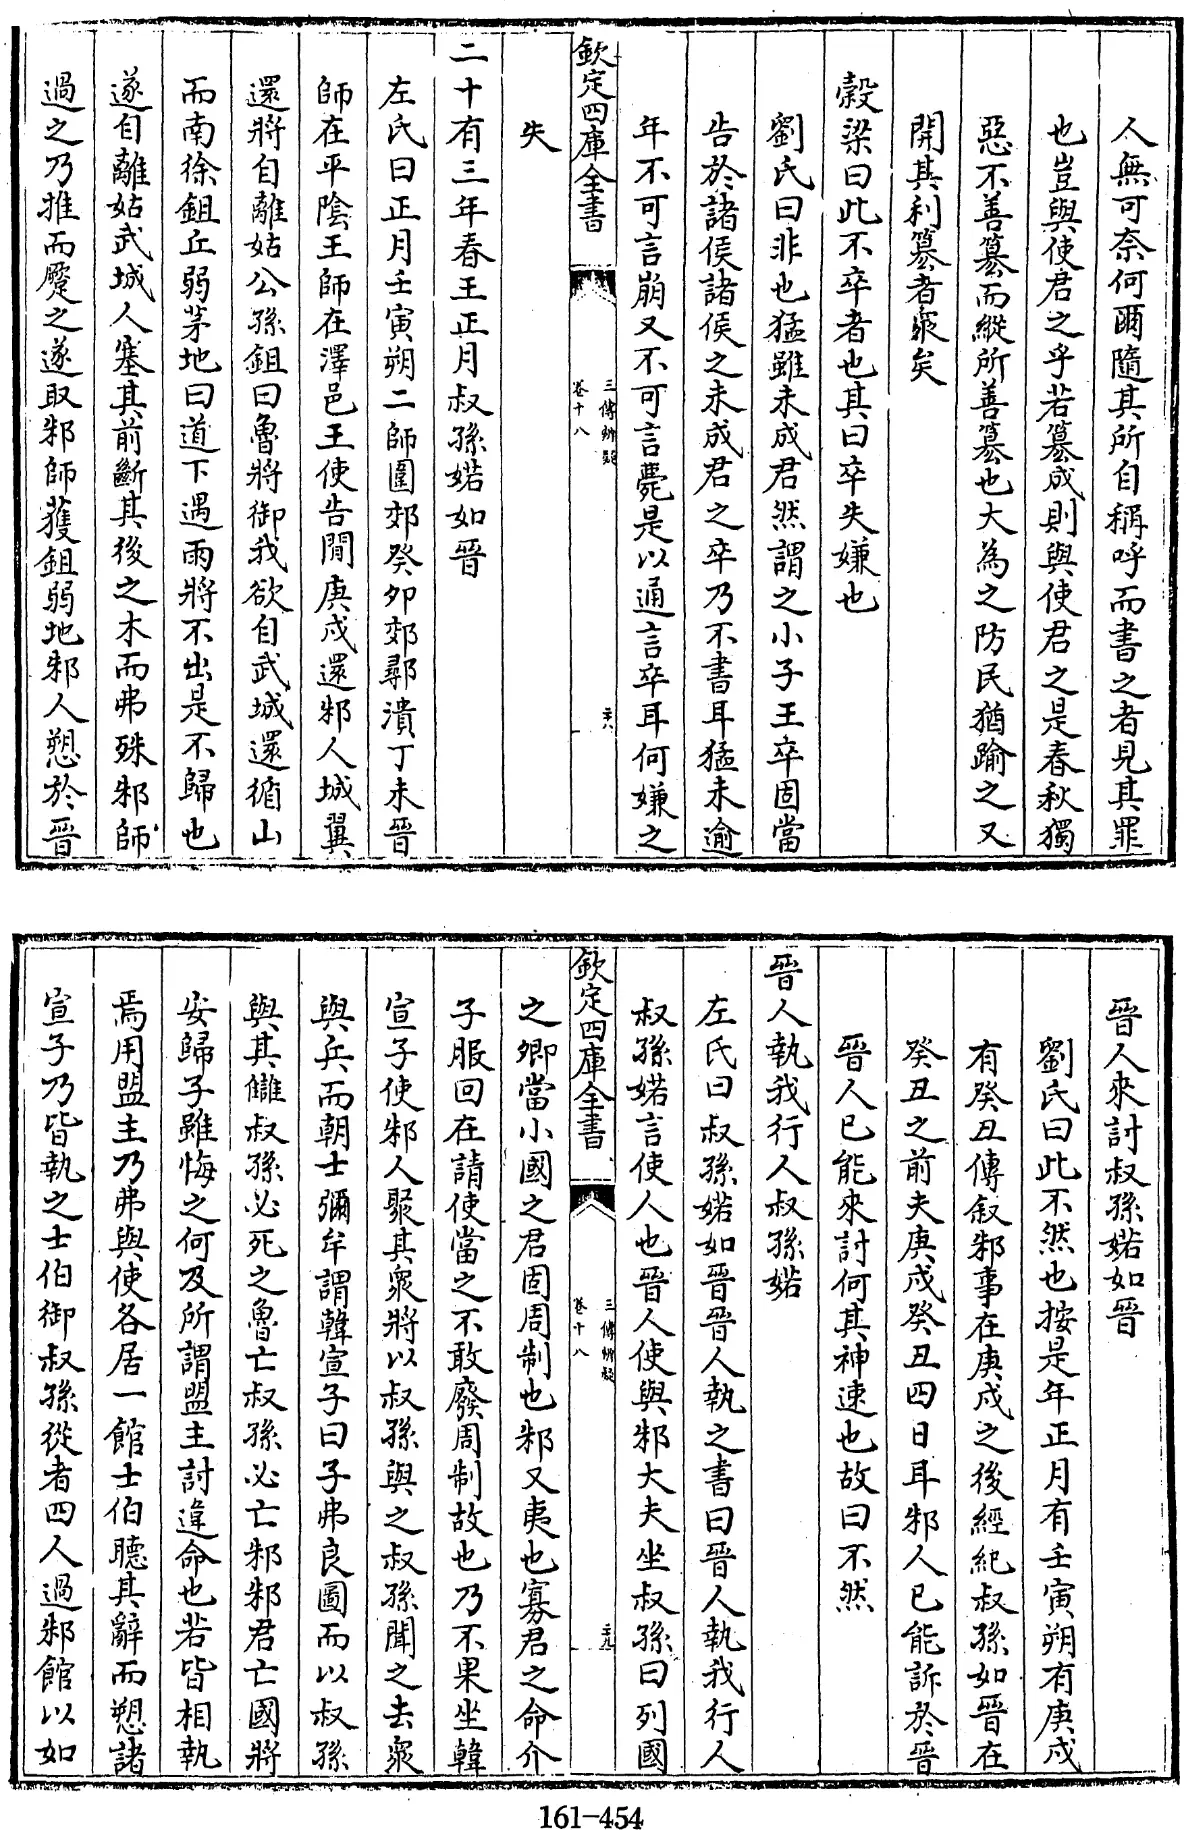 人無可奈何爾隨其所自稱呼而書之者見其罪
也豈與使君之乎若篡成則與使君之是春秋獨
惡不善篡而縱所善篡也大為之防民猶踰之又
開其利篡者衆矣
穀梁曰此不卒者也其曰卒失嫌也
劉氏曰非也猛雖未成君然謂之小子王卒固當
告於諸侯諸侯之未成君之卒乃不書耳猛未逾
年不可言崩又不可言薨是以通言卒耳何嫌之
欽定四庫全書
三傳辨疑
卷十八
三八
失
二十有三年春王正月叔孫婼如晉
左氏曰正月壬寅朔二師圍郊癸卯郊鄩潰丁未晉
師在平陰王師在澤邑王使告間庚戌還邾人城翼
還將自離姑公孫鉏曰魯將御我欲自武城還循山
而南徐鉏丘弱茅地曰道下遇雨將不出是不歸也
遂自離姑武城人塞其前斷其後之木而弗殊邾師
過之乃推而蹷之遂取邾師獲鉏弱地邾人愬於晉
晉人來討叔孫婼如晉
劉氏曰此不然也按是年正月有壬寅朔有庚戌
有癸丑傳叙邾事在庚戌之後經紀叔孫如晉在
癸丑之前夫庚戌癸丑四日耳邾人已能訴於晉
晉人已能來討何其神速也故曰不然
晉人執我行人叔孫婼
左氏曰叔孫婼如晉晉人執之書曰晉人執我行人
叔孫婼言使人也晉人使與邾大夫坐叔孫曰列國
欽定四庫全書
三傳辨疑
卷十八
三九
之卿當小國之君固周制也邾又夷也寡君之命介
子服回在請使當之不敢廢周制故也乃不果坐韓
宣子使邾人聚其衆將以叔孫與之叔孫聞之去衆
與兵而朝士彌牟謂韓宣子曰子弗良圖而以叔孫
與其讎叔孫必死之魯亡叔孫必亡邾邾君亡國將
安歸子雖悔之何及所謂盟主討違命也若皆相執
焉用盟主乃弗與使各居一館士伯聽其辭而愬諸
宣子乃皆執之士伯御叔孫從者四人過邾館以如
161-454